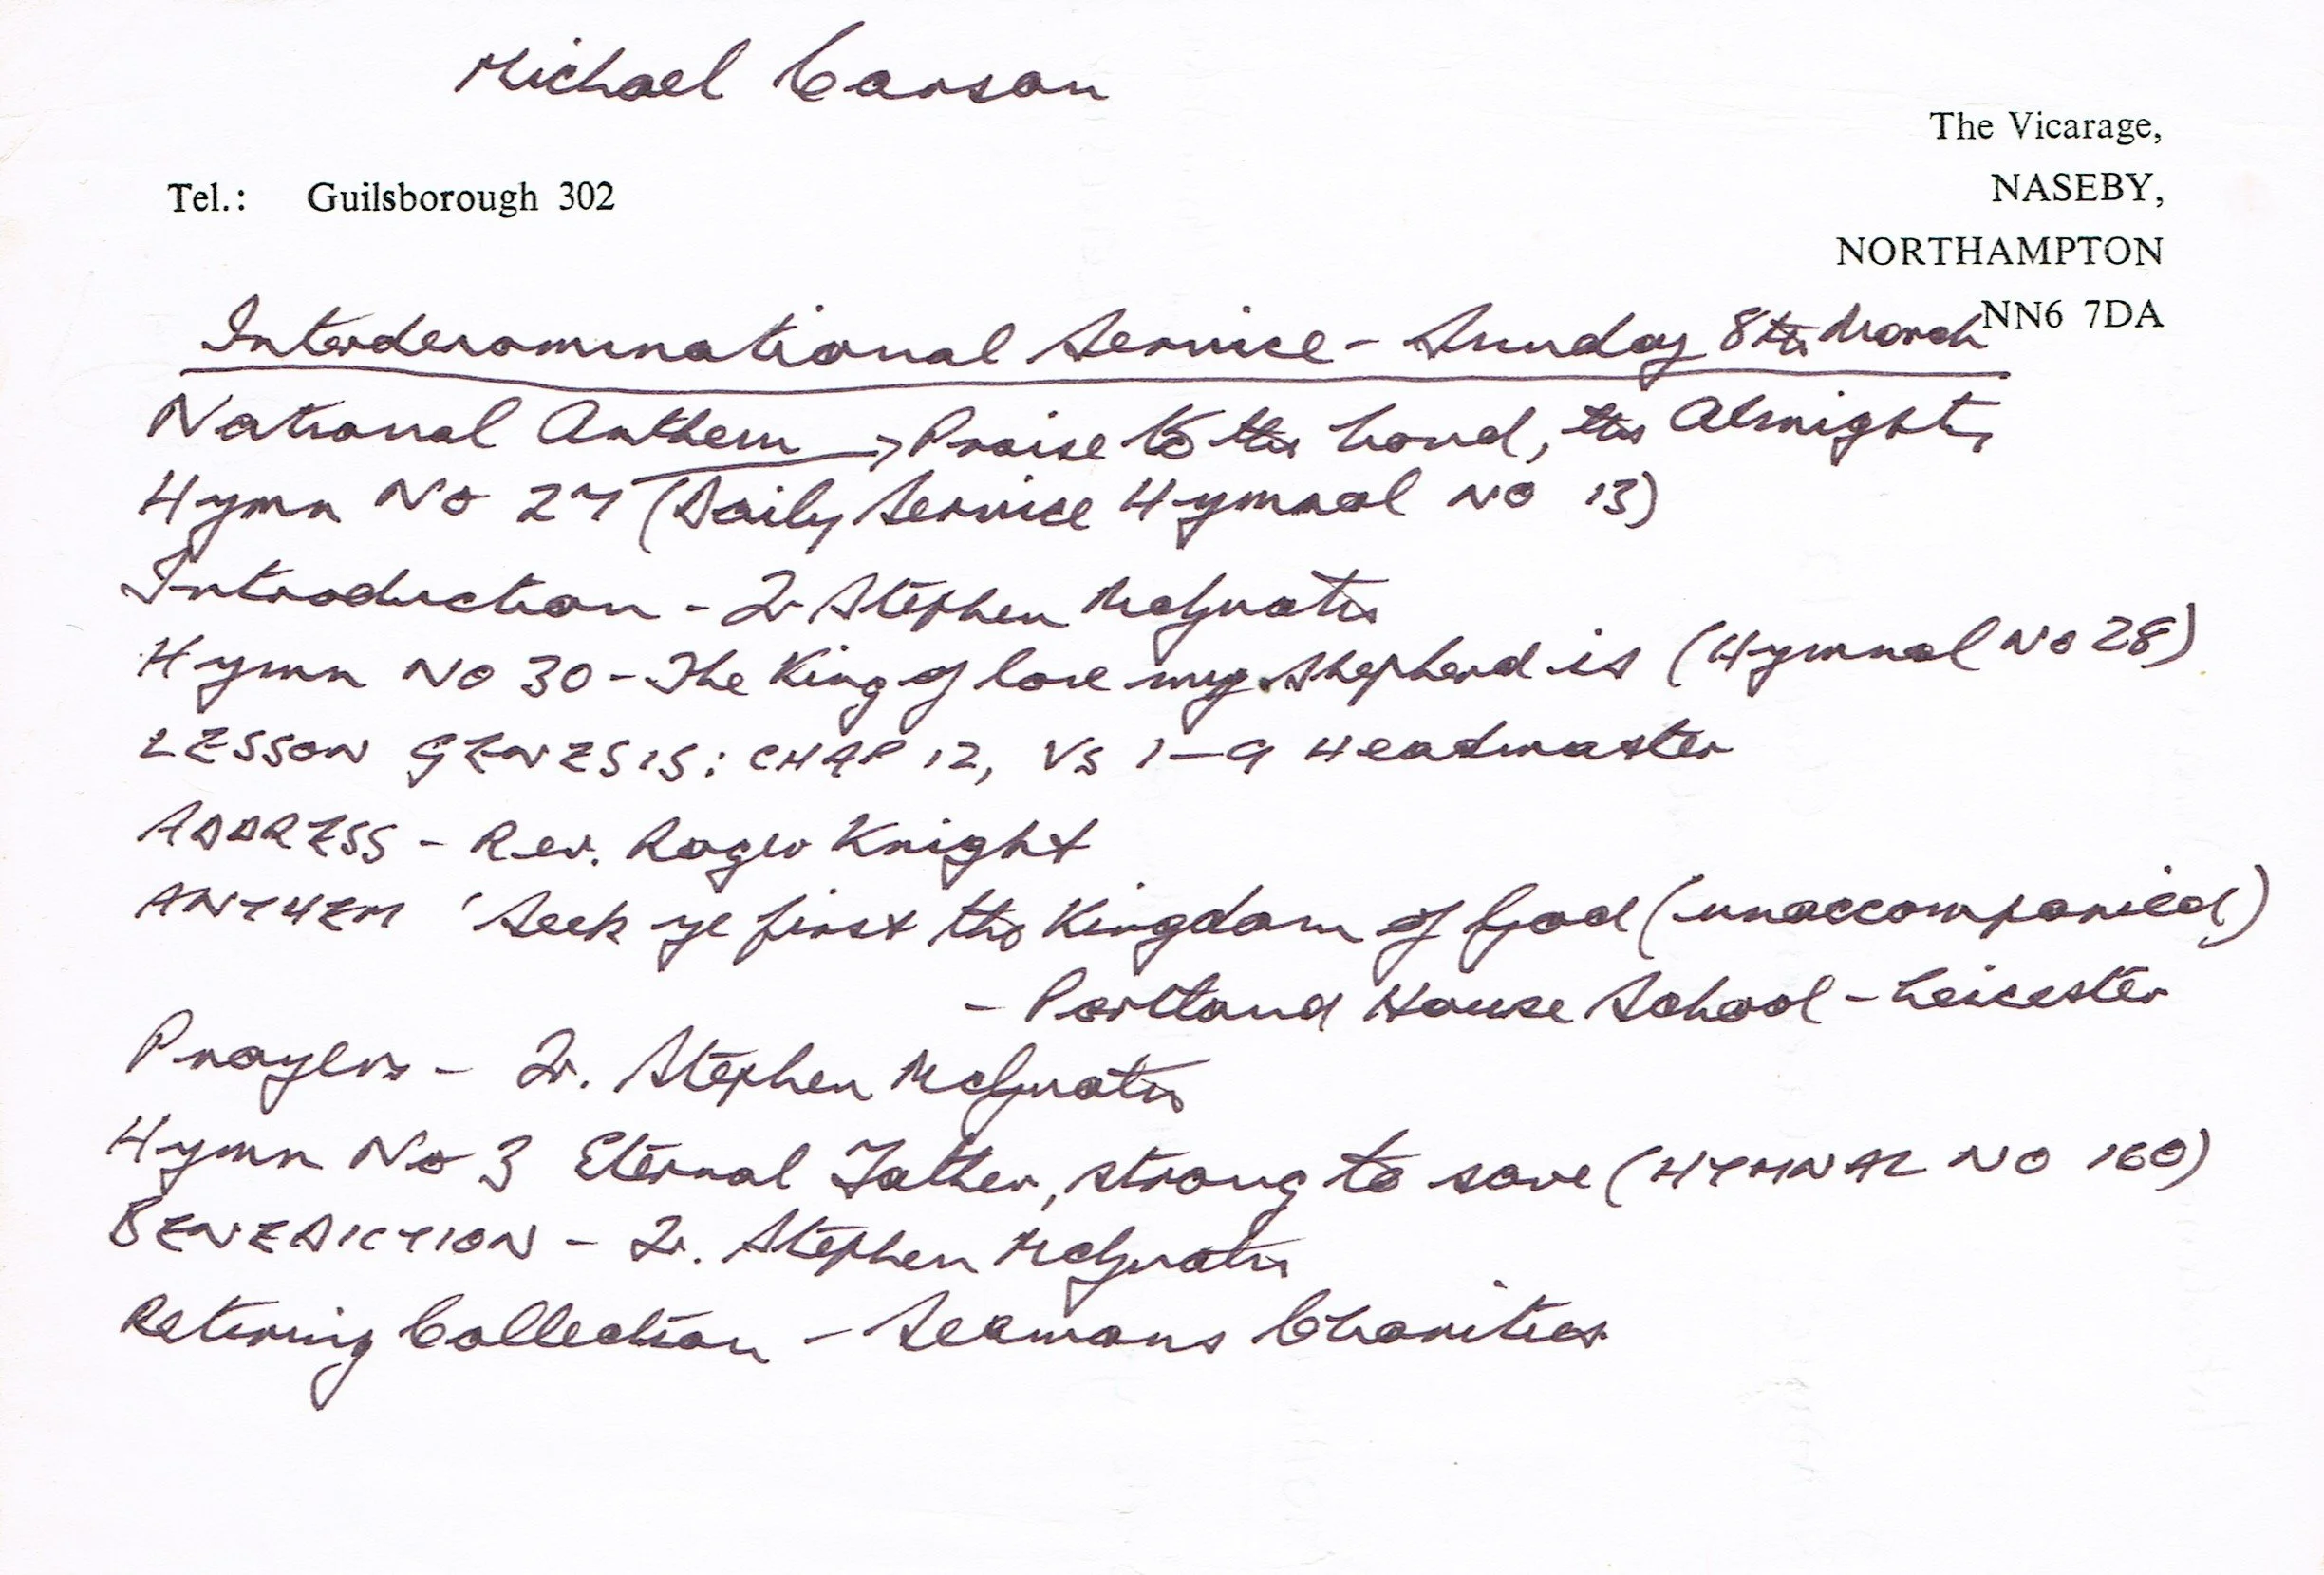 Michael Carson
The Vicarage,
Tel.: Guilsborough 302
NASEBY,
NORTHAMPTON
NN6 7DA
Interdenominational Service - Sunday 8th March
National Anthem → Praise to the Lord, the Almighty
Hymn No 27 (Daily Service Hymnal No 13)
Introduction - Stephen
Hymn No 30 - The King of love my Shepherd is (Hymnal No 28)
LESSON GENESIS: CHAP 12, Vs 1-9 Headmaster
ADDRESS - Rev. Roger Knight
ANTHEM 'Seek ye first the Kingdom of God (unaccompanied)
- Portland House School - Leicester
Prayers - Stephen
Hymn No 3 Eternal Father, strong to save (HYMNAL NO 160)
BENEDICTION - Stephen
Retiring Collection - Seamans Charities